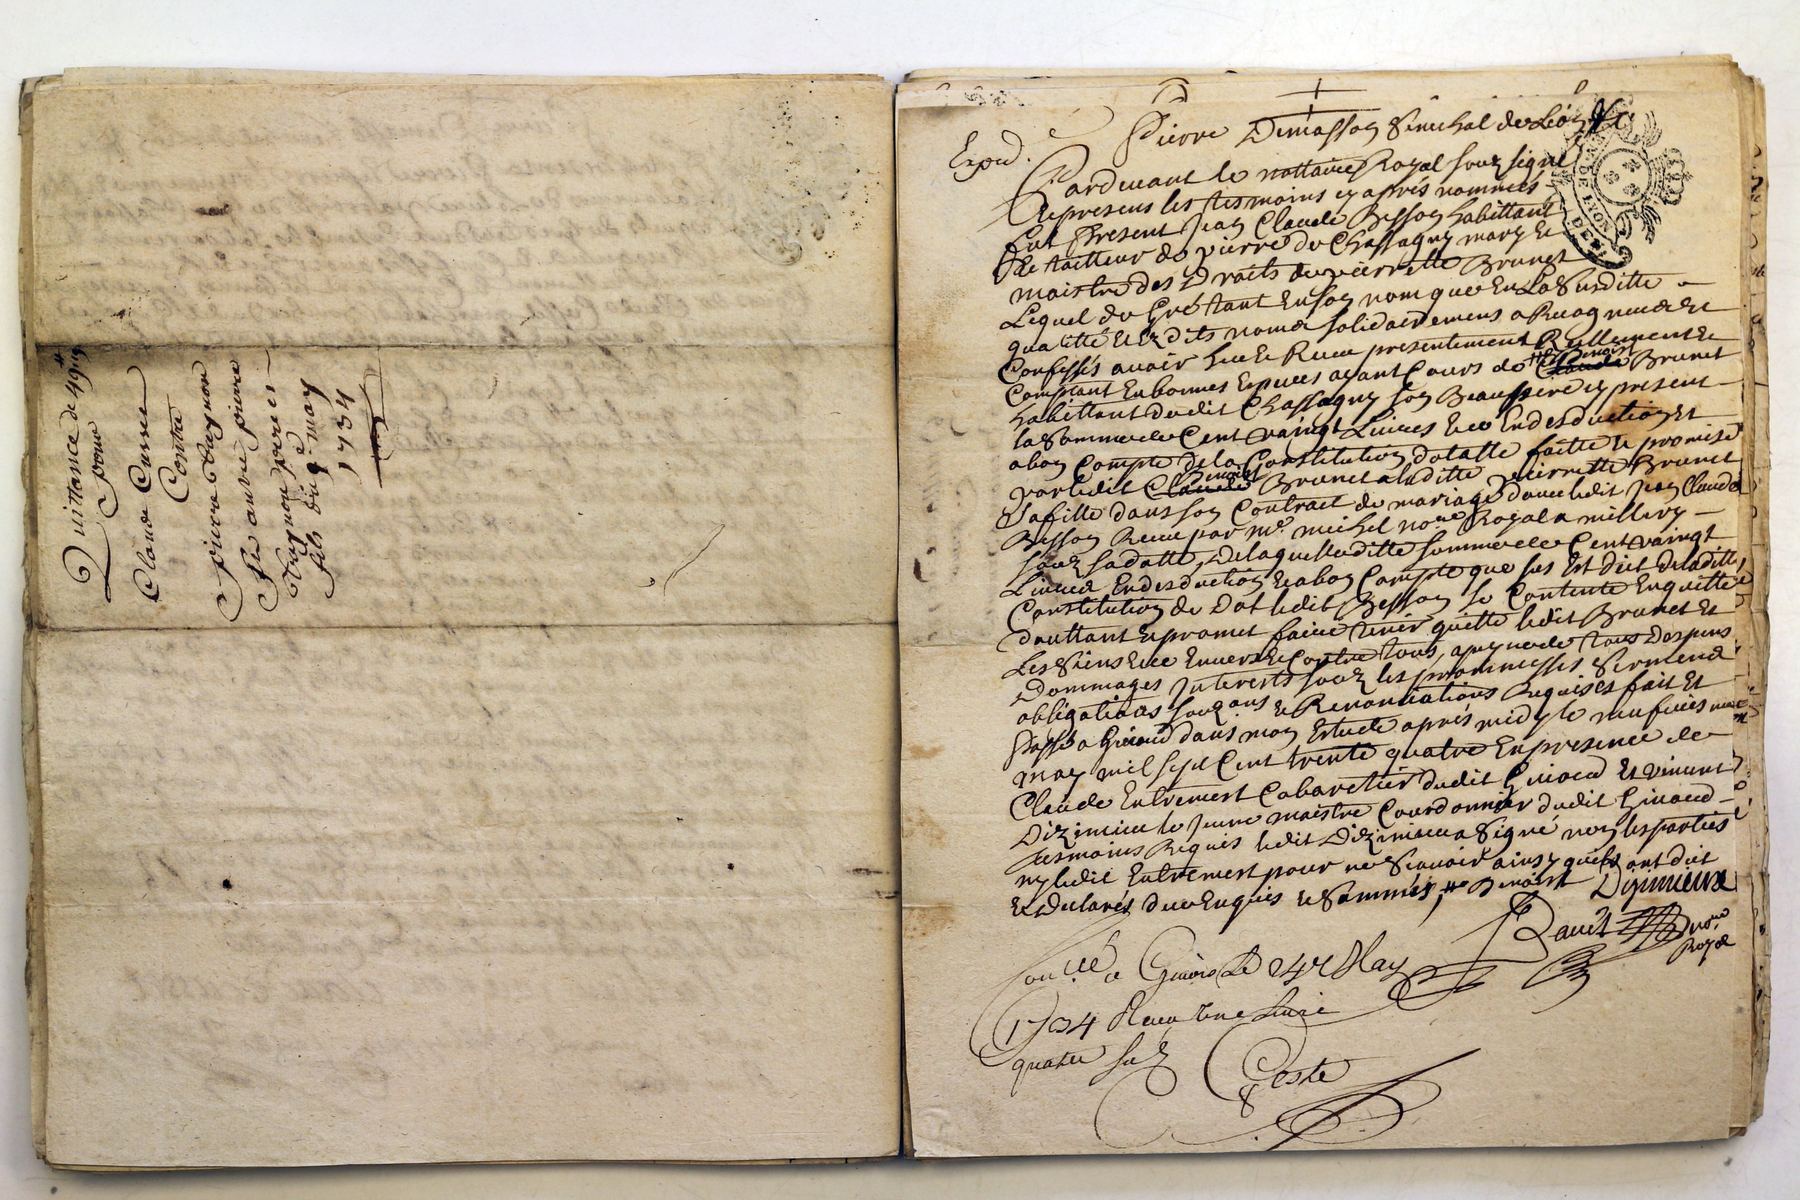 Quittance de 49 ₶ 19
pour
Claude Carre
Contre
pierre
et autre pierre
pere et
fils du 9e may
1734
Exped.
Pierre Demasson Senechal de Léon &c
Pardevant le nottaire Royal souz signé
Et presens les tesmoins cy aprés nommés
fut Present Jean Claude Besson habittant
et tailleur de pierre de Chassagny mary et
maistre des Droits de pierrette Brunet
Lequel de Gré tant En son nom que En La Susditte
qualitté et Ez dits noms solidairement a Recognu et
Confessés avoir heu et Receu presentement Reellement et
Comptant En bonnes Especes ayant Cours de benoist Brunet
habittant dudit Chassagny son Beaupere cy present
la Somme de Cent vaingt Livres Et ce En desduction Et
a bon Compte de la Constitution dotalle faitte et promise
par ledit benoist Brunet a laditte pierrette Brunet
Sa fille dans son Contract de mariage d'avec ledit Jean Claude
Besson Receu par me. michel nore. Royal a millery
souz sa datte, De laquelle ditte somme de Cent vaingt
Livres En desduction et a bon Compte que sus Est dit de laditte
Constitution de Dot ledit Besson se Contente En quitte
d'auttant et promet faire tenir quitte ledit Brunet Et
Les Siens Et ce Envers et Contre tous, a peyne de tous Despens
Dommages Interests souz les prommesses Serments
obligations souzons et Renontiations Requises fait Et
Passé a Givord dans mon Estude aprés midy le neufvies me
may mil sept Cent trente quatre En presence de
Claude Entremert Cabaretier dudit Givord Et vincent
Dizimieu le jeune maistre Courdonnier dudit Givord
tesmoins Requis ledit Dizimieu a Signé non les parties
ny ledit Entremert pour ne Scavoir ainsy qu'ils ont dit
et declarés de ce Enquis et Sommés, benoist Dizimieux
nore.
Royal
conllé a Givors Le 24e May
1734 Receu une Livre
quatre sols
Coste
GEN. DE LYON
DEUX